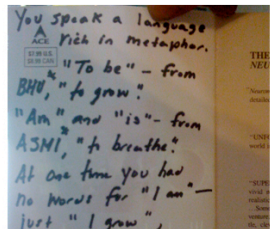 You speak a language
rich in metaphor.
ACE
"To be" – from
BHU, "to grow."
"Am" and "is" – from
ASMI, "to breathe."
At one time you had
no words for "I am" –
just "I grow",
THE
NEU
"UND
world i
"SUPE
vivid a